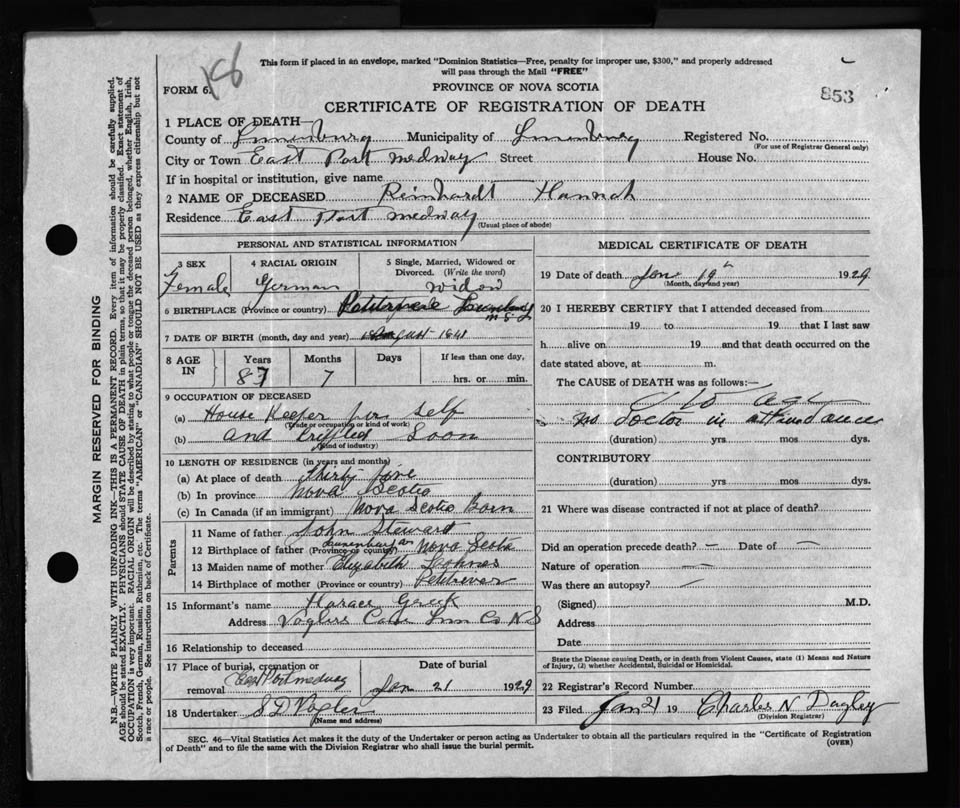 186
This form if placed in an envelope, marked "Dominion Statistics—Free, penalty for improper use, $300," and properly addressed
will pass through the Mail "FREE"
FORM 6.
PROVINCE OF NOVA SCOTIA
853
CERTIFICATE OF REGISTRATION OF DEATH
1 PLACE OF DEATH—
County of Lunenburg Municipality of Lunenburg Registered No.
(For use of Registrar General only)
City or Town East Port medway Street House No.
If in hospital or institution, give name
2 NAME OF DECEASED Reinhardt Hannah
Residence East Port medway
(Usual place of abode)
PERSONAL AND STATISTICAL INFORMATION
3 SEX 4 RACIAL ORIGIN 5 Single, Married, Widowed or
Divorced. (Write the word)
Female German widow
6 BIRTHPLACE (Province or country)
7 DATE OF BIRTH (month, day and year) August 1841
8 AGE IN Years Months Days If less than one day,
87 7 hrs. or min.
9 OCCUPATION OF DECEASED
(a) House Keeper for self
(Trade or occupation or kind of work)
(b) and Crippled Soon
(Kind of industry)
10 LENGTH OF RESIDENCE (in years and months)
(a) At place of death Thirty five
(b) In province Nova Scotia
(c) In Canada (if an immigrant) Nova Scotia Born
Parents
11 Name of father John Steward
12 Birthplace of father (Province or country) Lunenburg Nova Scotia
13 Maiden name of mother Elizabeth
14 Birthplace of mother (Province or country)
15 Informant's name Horace
Address Voglers Cove Lun Co N S
16 Relationship to deceased
17 Place of burial, cremation or Date of burial
removal East Port medway Jan 21 1929
18 Undertaker S D Vogler
(Name and address)
MEDICAL CERTIFICATE OF DEATH
19 Date of death Jan 19th 1929
(Month, day and year)
20 I HEREBY CERTIFY that I attended deceased from
19 to 19 that I last saw
h alive on 19 and that death occurred on the
date stated above, at m.
The CAUSE OF DEATH was as follows:—
Old age
no doctor in attendance
(duration) yrs mos dys.
CONTRIBUTORY
(duration) yrs. mos. dys.
21 Where was disease contracted if not at place of death?
Did an operation precede death? — Date of —
Nature of operation —
Was there an autopsy? —
(Signed) M.D.
Address
Date
State the Disease causing Death, or in death from Violent Causes, state (1) Means and Nature
of Injury, (2) whether Accidental, Suicidal or Homicidal.
22 Registrar's Record Number
23 Filed Jan 21 19 Charles N Dagley
(Division Registrar)
SEC. 46—Vital Statistics Act makes it the duty of the Undertaker or person acting as Undertaker to obtain all the particulars required in the "Certificate of Registration
of Death" and to file the same with the Division Registrar who shall issue the burial permit.
(OVER)
MARGIN RESERVED FOR BINDING
N.B.—WRITE PLAINLY WITH UNFADING INK—THIS IS A PERMANENT RECORD. Every item of information should be carefully supplied.
AGE should be stated EXACTLY. PHYSICIANS should STATE CAUSE OF DEATH in plain terms, so that it may be properly classified. Exact statement of
OCCUPATION is very important. RACIAL ORIGIN will be described by stating to what people or tongue the deceased person belonged, whether English, Irish,
Scotch, French, German, Russian, Ruthenian, etc. The terms "AMERICAN" or "CANADIAN" SHOULD NOT BE USED as they express citizenship but not
a race or people. See instructions on back of Certificate.